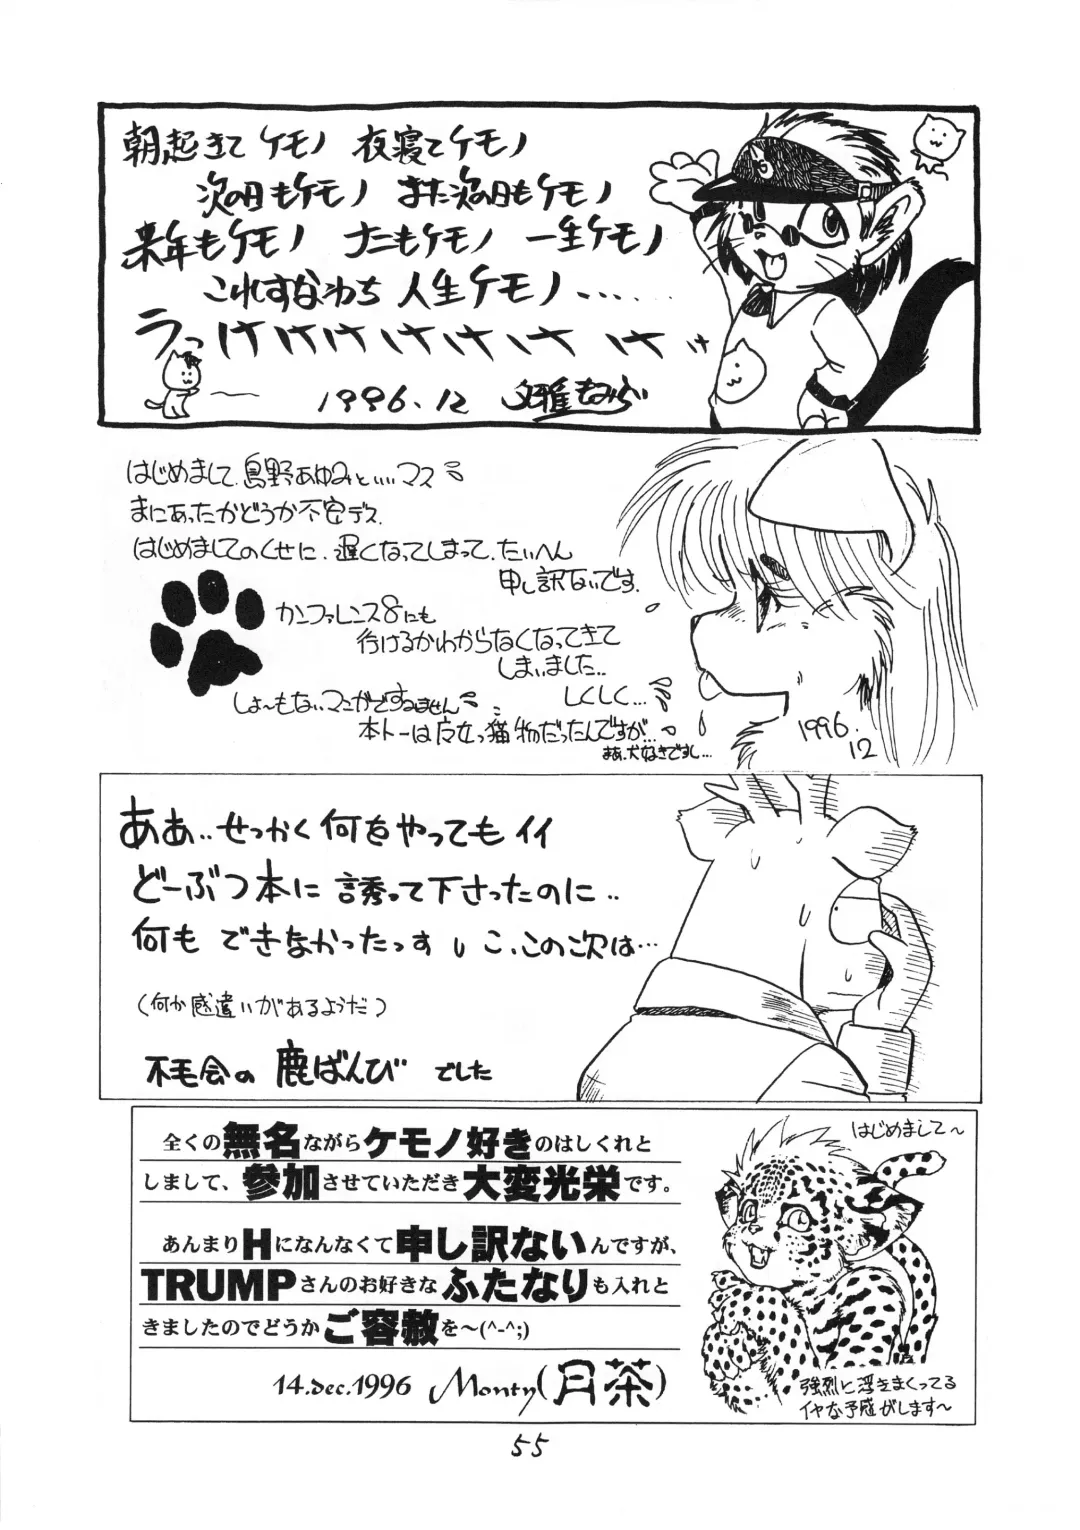 朝起きてケモノ 夜寝てケモノ
次の日もケモノ また次の日もケモノ
来年もケモノ ナニもケモノ 一生ケモノ
これすなわち 人生ケモノ‥‥‥
うっけけけけけけ けけ
1996.12
はじめまして、島野あゆみといいマス
まにあったかどうか不安デス.
はじめましてのくせに、遅くなってしまって、たいへん
申し訳ないです.
カンファレンス8にも
行けるかわからなくなってきて
しまいました..
しくしく...
しょ〜もないマンガですみません
本トーは 猫物だったんですが...
まあ、犬好きですし...
1996.
12
ああ‥せっかく何をやってもイイ
どーぶつ本に誘って下さったのに‥
何もできなかったっす しこ、この次は…
(何か感違いがあるようだ)
不毛会の 鹿ばんび でした
全くの無名ながらケモノ好きのはしくれと
はじめまして〜
しまして、参加させていただき大変光栄です。
あんまりHになんなくて申し訳ないんですが、
TRUMPさんのお好きなふたなりも入れと
きましたのでどうかご容赦を〜(^-^;)
14.dec.1996 Monty(月茶)
強烈に浮きまくってる
イヤな予感がします〜
55